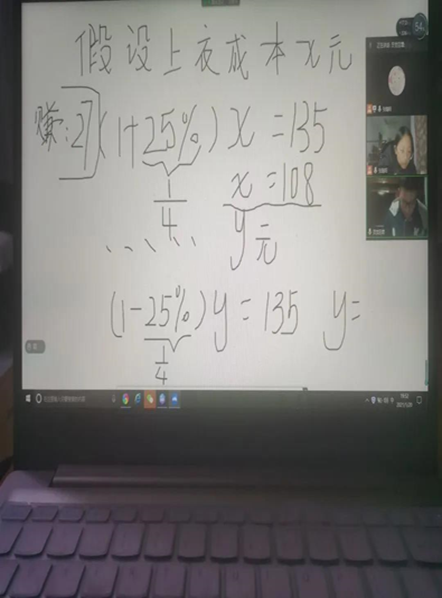 假设上衣成本x元
赚:27 (1+25%)x=135
1/4
x=108
y元
(1-25%)y=135 y=
1/4